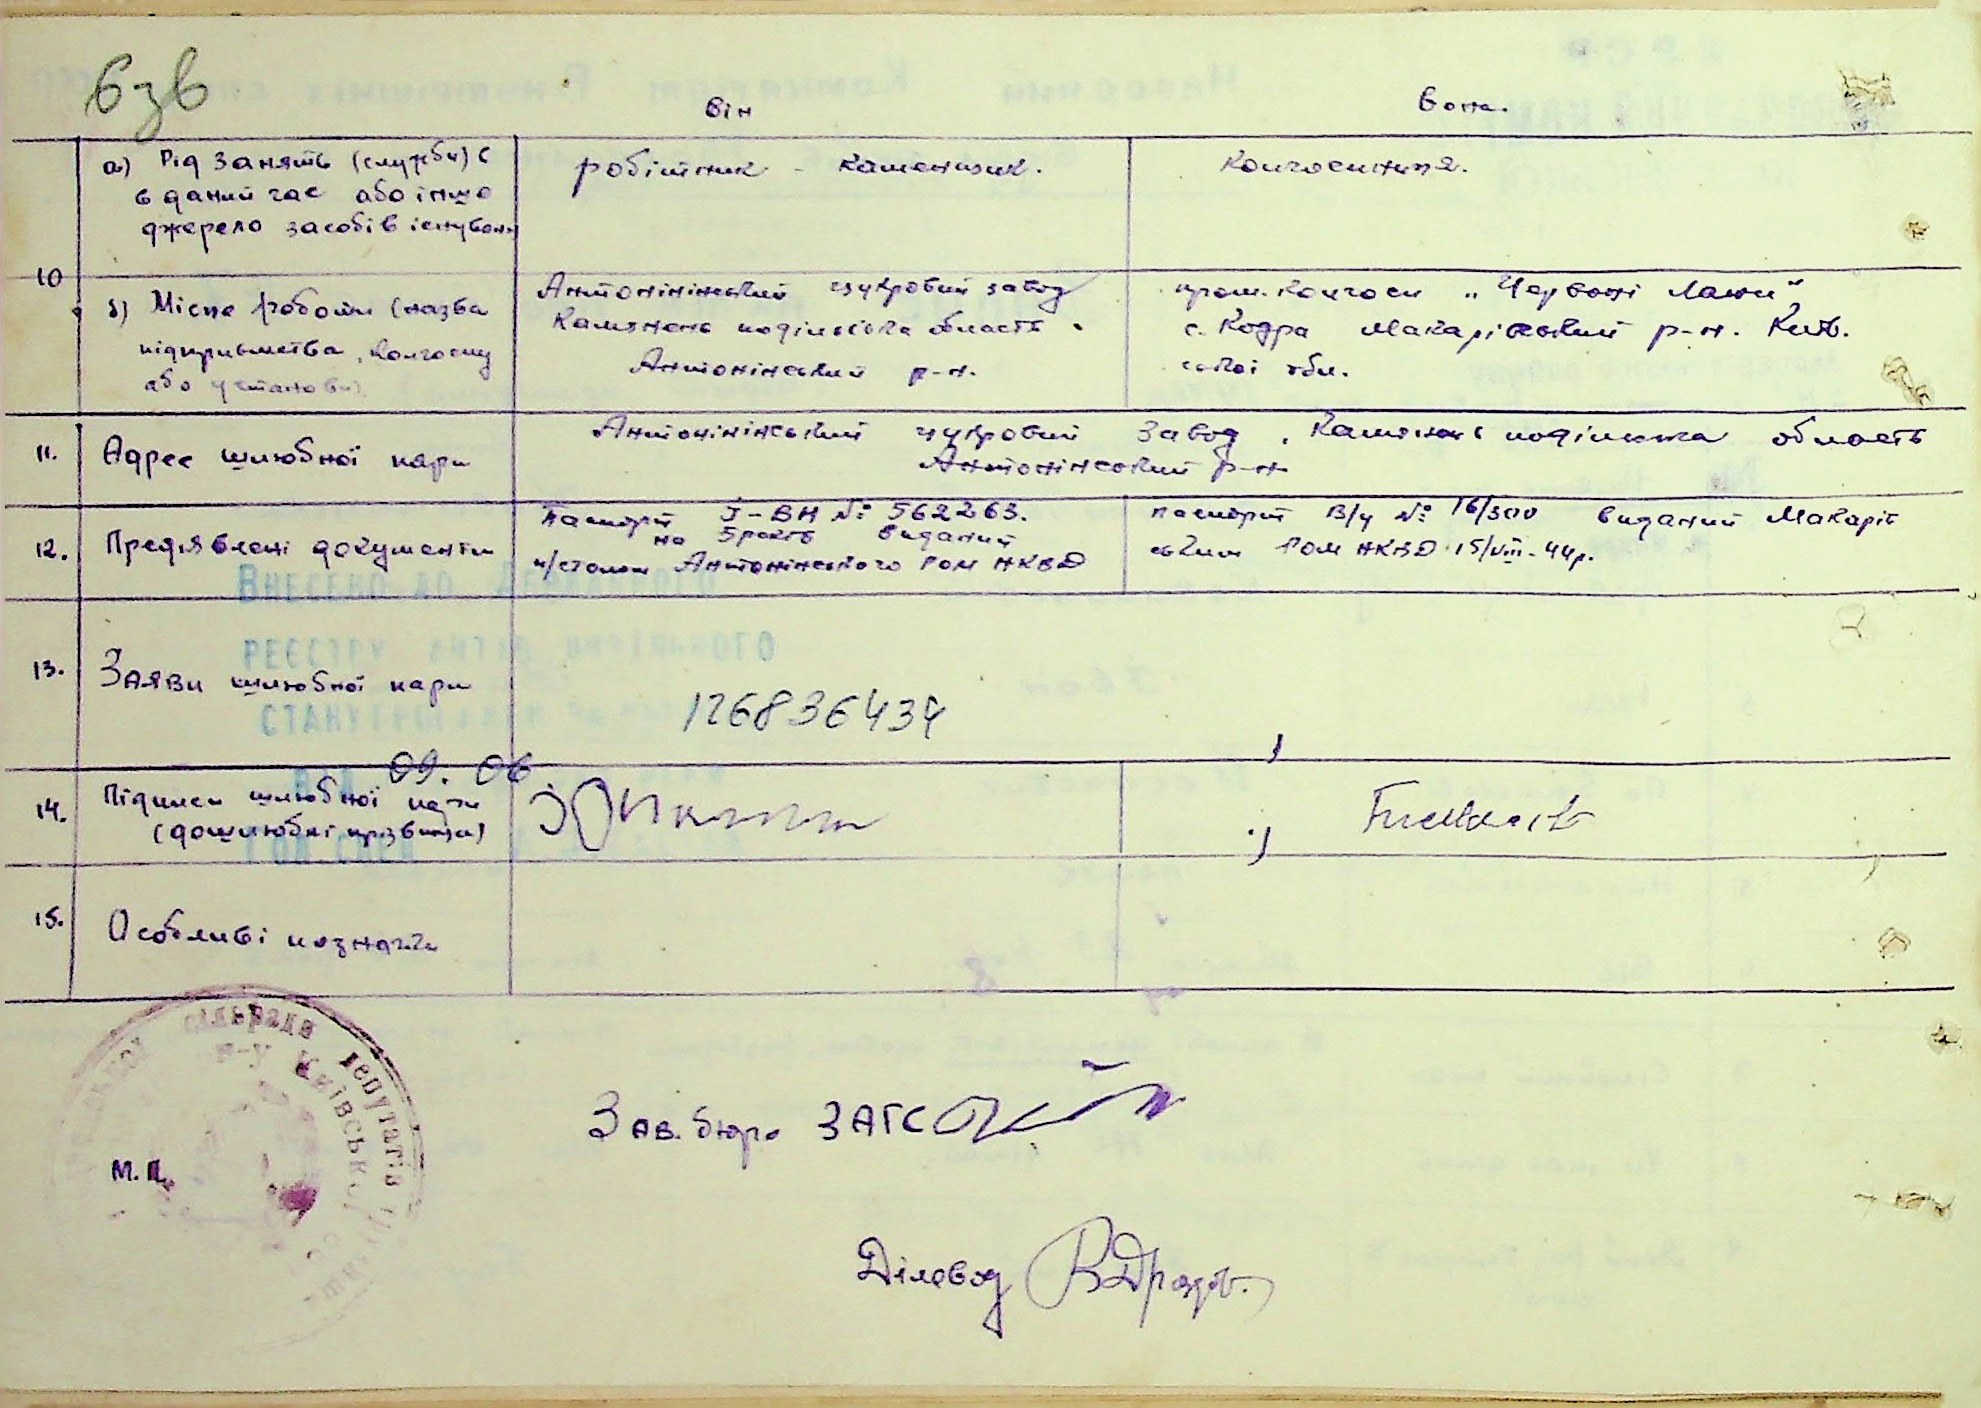 6зв
він
вона.
10
а) Рід занять (служби)
в даний час або інше
джерело засобів існуванн
робітник - каменщик.
Колгоспниця.
б) Місце роботи (назва
підприємства, колгоспу
або установи)
Антонінінський цукровий завод
Камянець подільська область.
Антонінський р-н.
пром. колгосп „Червоні Лани"
с. Кодра Макарівський р-н. Київ.
ської обл.
11. Адрес шлюбної пари
Антонінінський цукровий завод, Камянець подільська область
Антонінський р-н
12. Предявлені документи
паспорт І-ВН № 562263.
на 5 років виданий
п/столом Антонінського РОМ НКВД
паспорт В/ч № 16/300 виданий Макарів
ським РОМ НКВД 15/VIII-44р.
ВНЕСЕНО ДО ДЕРЖАВНОГО
РЕЄСТРУ АКТІВ ЦИВІЛЬНОГО
СТАНУ ГРОМАДЯН
13. Заяви шлюбної пари
126836434
09. 06
14. Підписи шлюбної пари
(дошлюбні прізвища)
15. Особливі позначки
сільрада депутатів
р-у Київської
М. П.
Зав. бюро ЗАГС
Діловод